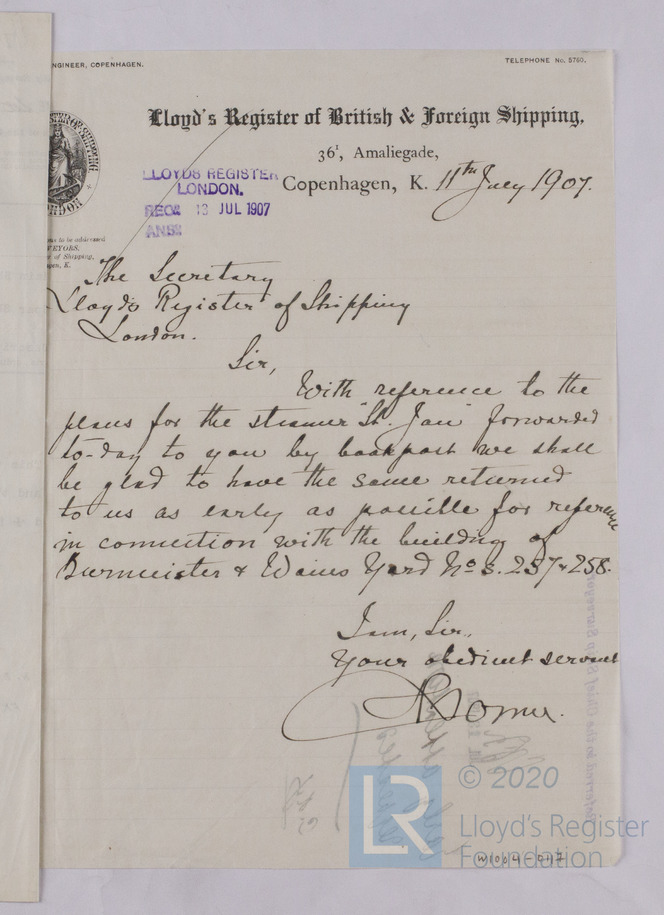 NGINEER, COPENHAGEN.
TELEPHONE No. 5760.
Lloyd's Register of British & Foreign Shipping,
36¹, Amaliegade,
Copenhagen, K. 11th July 1907.
LLOYDS REGISTER
LONDON.
REC& 13 JUL 1907
ANS&
ns to be addressed
VEYORS.
r of Shipping,
gen, K.
The Secretary
Lloyds Register of Shipping
London.
Sir,
With reference to the
plans for the steamer "St. Jan" forwarded
to-day to you by bookpost we shall
be glad to have the same returned
to us as early as possible for reference
in connection with the building of
Burmeister & Wains Yard Nos. 257 & 258.
I am, Sir,
Your obedient servant
© 2020
LR
Lloyd's Register
Foundation
W1004-0147